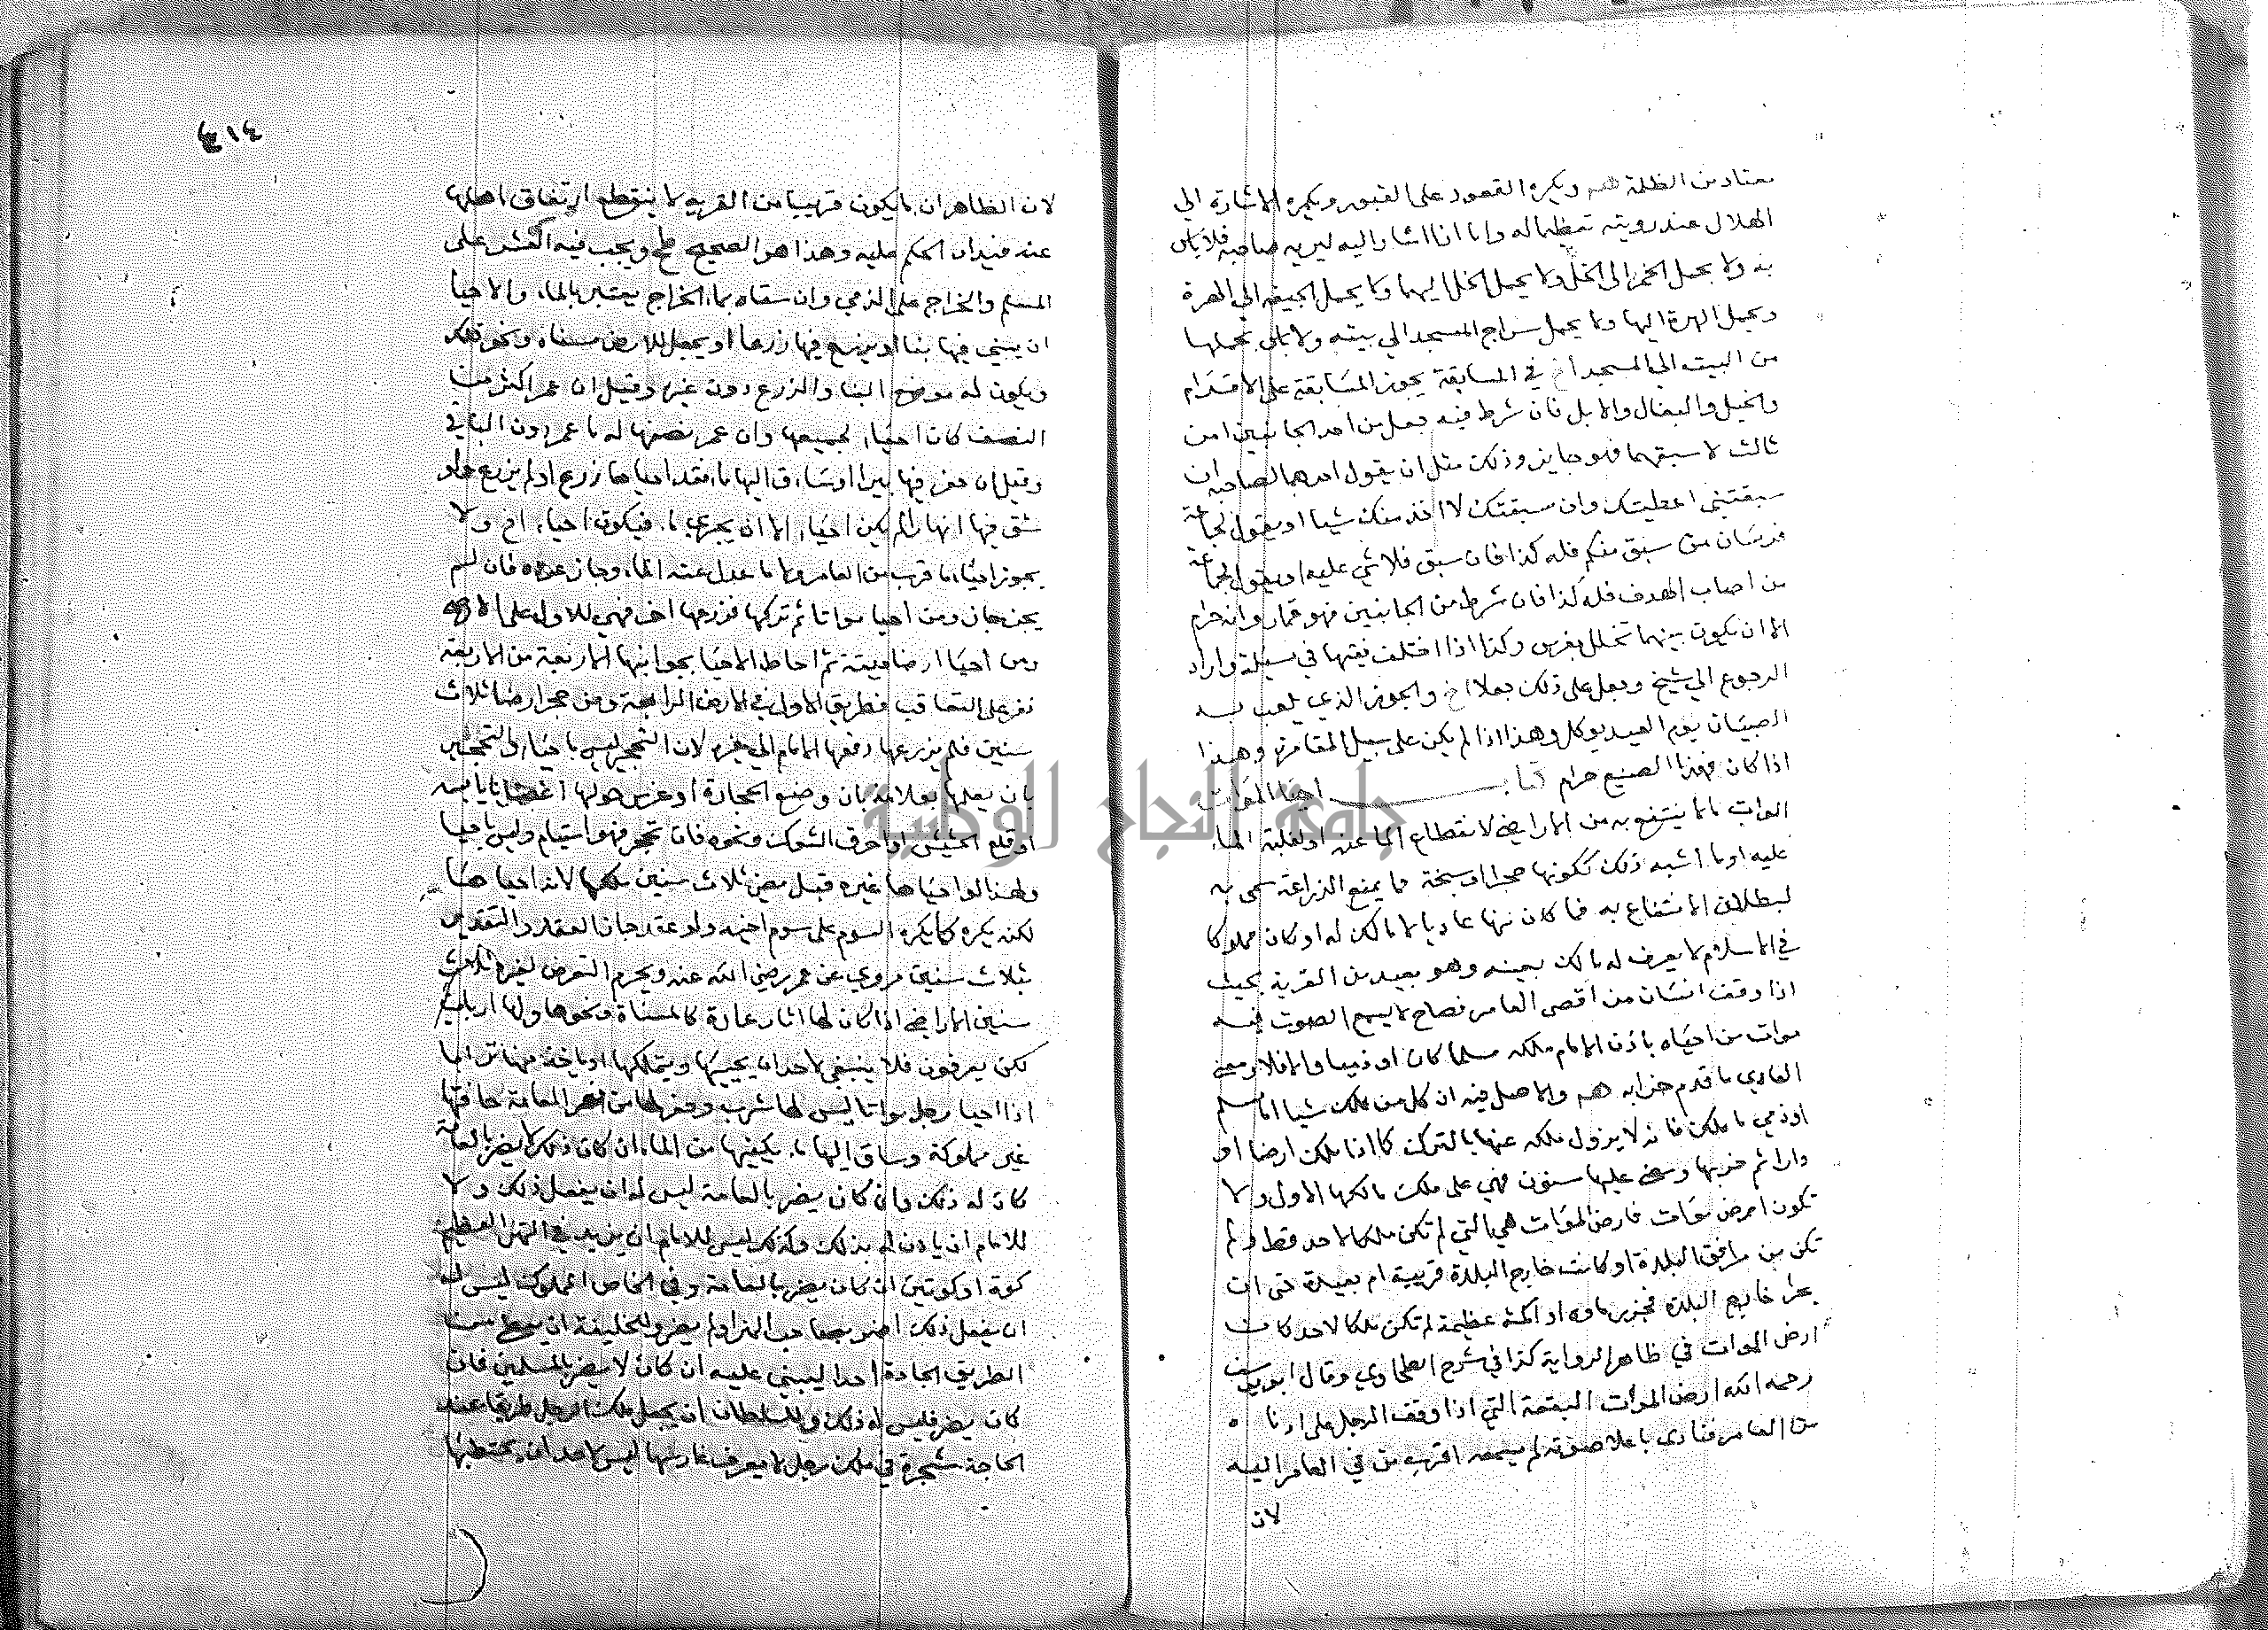 معتاد من الظلمة هـ ويكره القعود على القبور ويكره الاشارة الي
الهلال عند رويته تعظيما له واما اذا اشار اليه ليريه صاحبه فلا باس
به ولا يحمل الخمر الى الخل ولا يحمل الخل اليها وكا يحمل الجيفة الي الهرة
ويحمل الهرة اليها ولا يحمل سراج المسجد الي بيته ولا باس بحملها
من البيت الي المسجد اخ في المسابقة يجوز المسابقة على الاقدام
والخيل والبغال والابل فان شرط فيه جعل من احد الجانبين او من
ثالث لاسبقهما فهو جايز وذلك مثل ان يقول احدهما لصاحبه ان
سبقتني اعطيتك وان سبقتك لا اخذ منك شيا او يقول لجماعة
فرسان من سبق منكم فله كذا فان سبق فلا شي عليه او يقول لجماعة
من اصاب الهدف فله كذا فان شرط من الجانبين فهو قمار وانه حرام
الا ان يكون بينهما محلل بفرس وكذا اذا اختلف فقيها في مسيلة واراد
الرجوع الي شيخ وجعل على ذلك جعلا اخ والجوز الذي يلعب به
الصبيان يوم العيد يوكل وهذا اذا لم يكن على سبيل المقامرة وهذا
اذا كان فهذا الصنيع حرام كتاب احيا الموات
الموات ما لا ينتفع به من الاراضي لانقطاع الما عنه او لغلبة الماء
عليه او ما اشبه ذلك ككونها حجرا او سبخة مما يمنع الزراعة سمي به
لبطلان الانتفاع به فما كان منها عاديا لا مالك له او كان مملوكا
في الاسلام لا يعرف له مالك بعينه وهو بعيد من القرية بحيث
اذا وقف انسان من اقصى العامر فصاح لا يسمع الصوت فيه
موات من احياه باذن الامام ملكه مسلما كان او ذميا والا فلا ومعنى
العادي ما قدم خرابه هـ والاصل فيه ان كل من ملك شيا اما مسلم
او ذمي ما ملك فانه لا يزول ملكه عنها بالترك كما اذا ملك ارضا او
دارا ثم خربها ومضى عليها سنون فهي على ملك مالكها الاول ولا
تكون ارض موات فارض الموات هي التي لم تكن ملكا لاحد قط ولم
تكن من مرافق البلدة او كانت خارج البلدة قريبة ام بعيدة حتى ان
بحرا خارج البلدة فجزر ماوه او اكمة عظيمة لم تكن ملكا لاحد كانت
ارض الموات في ظاهر الرواية كذا في شرح الطحاوي وقال ابو يوسف
رحمه الله ارض الموات البقعة التي اذا وقف الرجل على ادنا ه
من العامر فنادى باعلا صوته لم يسمعه اقرب من في العامر اليه
لان
٤١٤
لان الظاهر ان ما يكون قريبا من القرية لا ينقطع ارتفاق اهلها
عنه فيدار الحكم عليه وهذا هو الصحيح ط ويجب فيه العشر على
المسلم والخراج على الذمي وان سقاه بماء الخراج يعتبر بالماء والاحيا
ان يبني فيها بنا او يزرع فيها زرعا او يجعل للارض مسناه ونحو ذلك
ويكون له موضع البنا والزرع دون غيره وقيل ان عمر اكثر من
النصف كان احياء لجميعها وان عمر نصفها له ما عمر دون الباقي
وقيل ان حفر فيها بيرا او ساق اليها ماء فقد احياها زرع او لم يزرع ولو
شق فيها انهارا لم يكن احياء الا ان يجري ماء فيكون احياء اخ ولا
يجوز احياء ما قرب من العامر ولا ما عدل عنه الماء وجاز عوده فان لم
يجز جاز ومن احيا مواتا ثم تركها فزرعها اخر فهي للاول على الاصح
ومن احيا ارضا ميتة ثم احاط الاحيا بجوانبها الاربعة من الاربعة
نفر على التعاقب فطريق الاول في الارض الرابعة ومن حجر ارضا ثلاث
سنين فلم يزرعها دفعها الامام الي غيره لان التحجير ليس باحياء والتحجير
بان يعلمها بعلامة بان وضع الحجارة او غرس حولها اغصانا يابسة
او قلع الحشيش او احرق الشوك ونحوه فان تحجر فهو استيام وليس باحيا
ولهذا لو احياها غيره قبل مضي ثلاث سنين ملكها لانه احيا هنا
لكنه يكره كما يكره السوم على سوم اخيه ولو عقد جاز العقد والتقدير
بثلاث سنين مروي عن عمر رضي الله عنه ويحرم التعرض لغيره ثلاث
سنين الاراضي اذا كان لها اثار عمارة كالمسناة ونحوها ولها ارباب
لكن يعرفون فلا ينبغي لاحد ان يحييها ويتملكها او ياخذ منها ترابا
اذا احيا رجل مواتا ليس لها شرب وحفر لها من نهر العامة حافتها
غير مملوكة وساق اليها ماء يكفيها من الماء ان كان ذلك لا يضر بالعامة
كان له ذلك وان كان يضر بالعامة ليس له ان يفعل ذلك ولا
للامام ان ياذن له بذلك وكذلك ليس للامام ان يزيد في النهر العظيم
كوة او كوتين ان كان يضر بالعامة وفي الخاص المملوك ليس له
ان يفعل ذلك اضر بصاحب النهر او لم يضر وللخليفة ان يقطع من
الطريق الجادة احدا ليبني عليه ان كان لا يضر بالمسلمين فان
كان يضر فليس له ذلك وللسلطان ان يجعل ملك الرجل طريقا عند
الحاجة شجرة في ملك رجل لا يعرف غارسها ليس لاحد ان يحتطبها
جامعة النجاح الوطنية